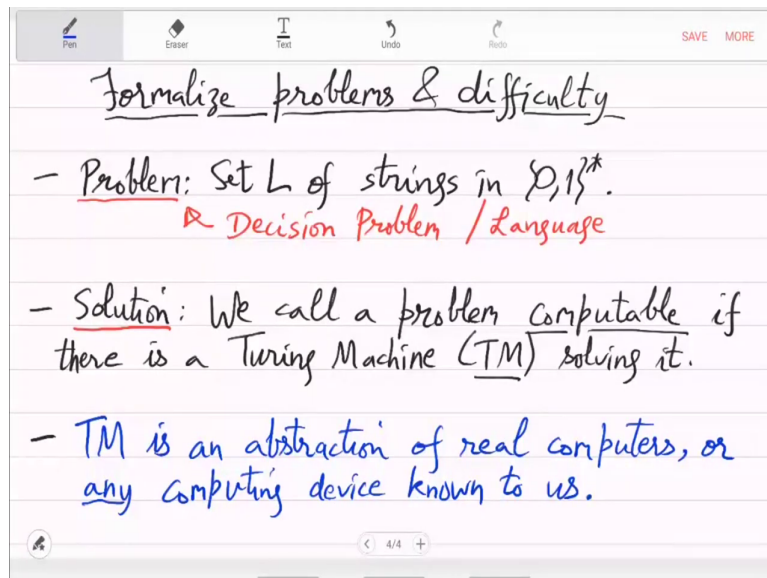 Pen Eraser Text Undo Redo SAVE MORE
Formalize problems & difficulty
- Problem: Set L of strings in {0,1}*.
Decision Problem / Language
- Solution: We call a problem computable if
there is a Turing Machine (TM) solving it.
- TM is an abstraction of real computers, or
any computing device known to us.
< 4/4 +